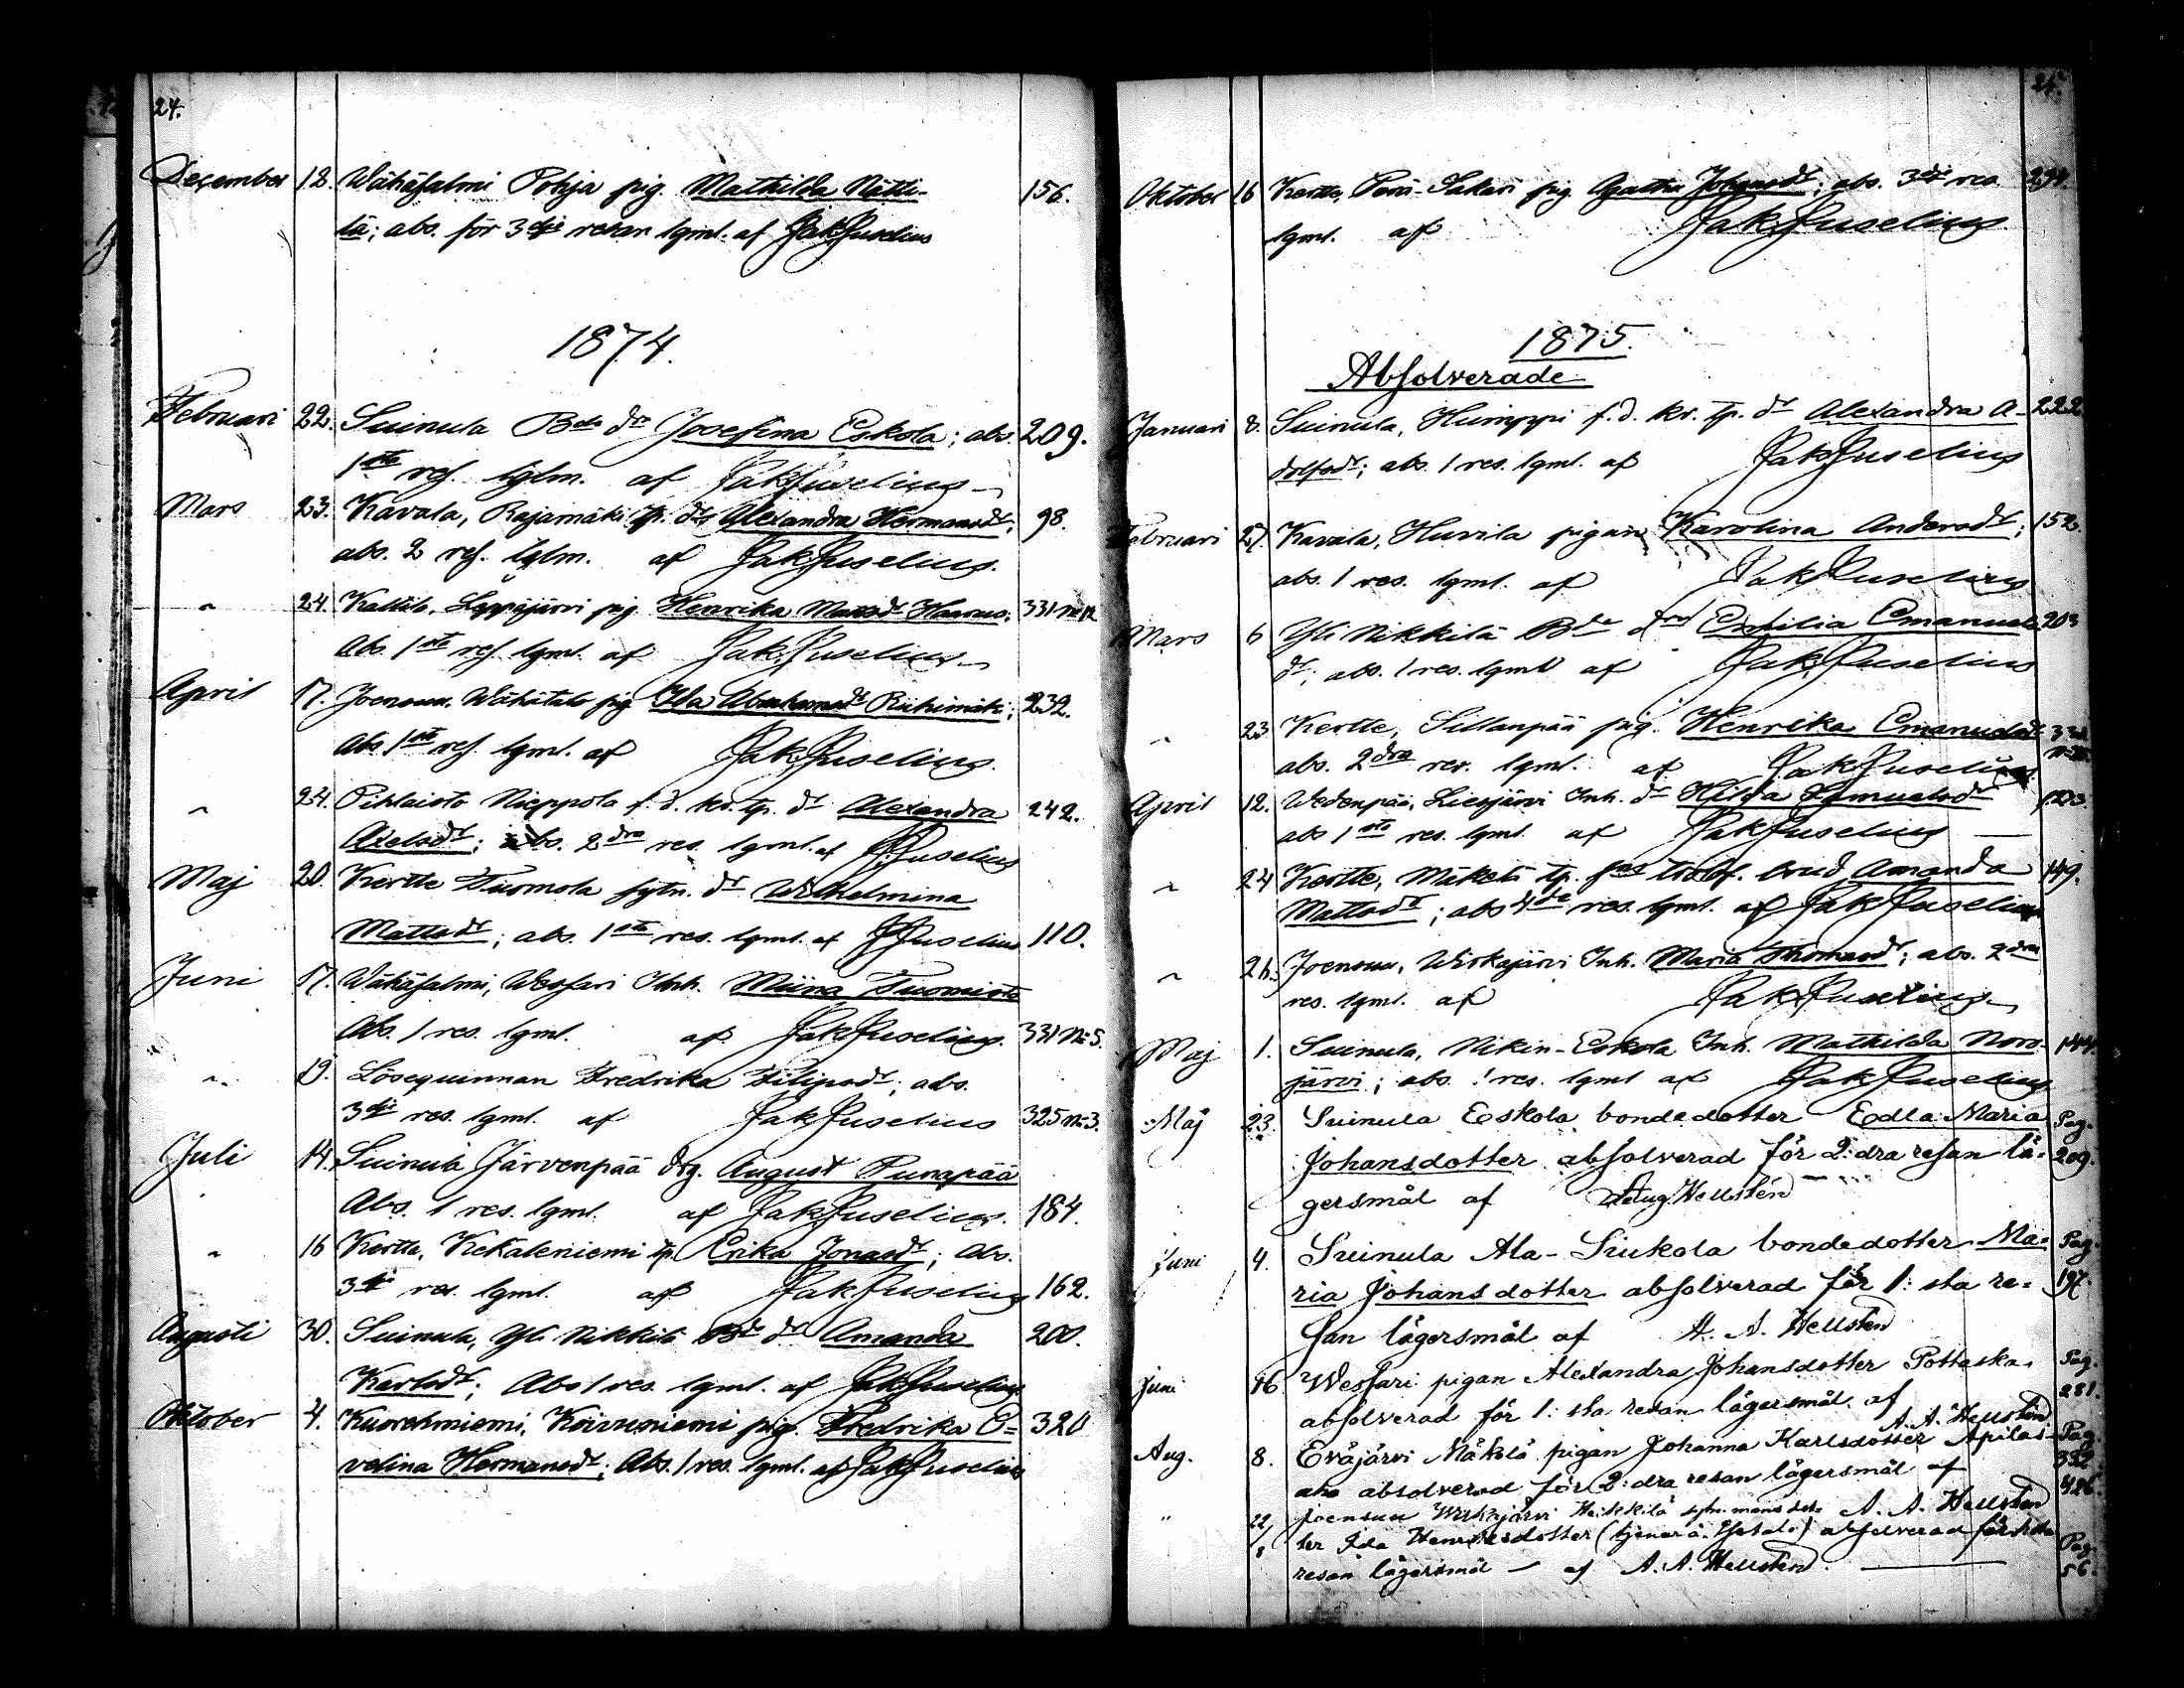 24.
December 12. Wähäsalmi Pohja pig. Mathilda Nätti- 156.
lä; abs. för 3dje resan lgml. af Jak Juselius
1874.
Februari 22. Suinula Bde dr Josefina Eskola; abs. 209.
1sta res. lglm. af Jak Juselius
Mars 23. Kavala, Rajamäki tp. dr Alexandra Hermansdr; 98.
abs. 2 res. lglm. af Jak Juselius.
" 24. Leppäjärvi pig. Henrika Matsdr 331
Abs. 1sta res. lgml. af Jak Juselius
April 17. Joensuu, Wähätalo pig. Ida Abrahamsdr Riihimäki; 232.
Abs 1sta res. lgml. af Jak Juselius.
" 24. Pihlaisto Nieppola f. d. kr. tp. dr Alexandra 242.
Axelsdr; abs. 2dra res. lgml. af J. Juselius
Maj 20. Kertte Tuomola sytn. dr Wilhelmina
Mattsdr; abs. 1sta res. lgml. af J. Juselius 110.
Juni 17. Wähäsalmi, Wessari Inh. Miina Tuomisto
Abs. 1 res. lgml. af Jak Juselius. 331 N:5.
" 19. Lösequinnan Fredrika Filipsdr; abs.
3dje res. lgml. af Jak Juselius 325 N:3.
Juli 14. Suinula Järvenpää drg. August Punapää
Abs. 1 res. lgml. af Jak Juselius. 184.
" 16 Kertte, Kekäleniemi tp. Erika Jonasdr; Abs.
3dje res. lgml. af Jak Juselius 162.
Augusti 30. Suinula, Yli Nikkilä Bde dr Amanda 200.
Karlsdr; Abs 1 res. lgml. af Jak Juselius
Oktober 4. Kuorehmiemi, Koivuniemi pig. Fredrika E= 320
velina Hermansdr; Abs. 1 res. lgml. af Jak Juselius
Oktober 16 Kertte, Sakari pig. Agatha Johansdr; abs. 3dje res.
lgml. af Jak Juselius.
1875.
Absolverade
Januari 8. Suinula, Humppi f. d. kr. tp. dr Alexandra A- 222
dolfsdr; abs. 1 res. lgml. af Jak Juselius
Februari 27. Kavala, Huvila pigan Karolina Andersdr; 152
abs. 1 res. lgml. af Jak Juselius
Mars 6 Yli Nikkilä Bde dr Emanuels 203
dr; abs. 1 res. lgml af Jak Juselius
" 23 Kertte, Sillanpää pig. Henrika Emanuelsdr
abs. 2dra res. lgml. af Jak Juselius
April 12. Wedenpää, Liesjärvi Inh. dr Hilda Samuelsdr
abs 1sta res. lgml. af Jak Juselius
" 24 Kertte, Mäkelä tp. brud Amanda 149.
Mattsdr; abs 4de res. lgml. af Jak Juselius
" 26. Joensuu, Wirkajärvi Inh. Maria Thomasdr; abs. 2dra
res. lgml. af Jak Juselius
Maj 1. Suinula, Nikin-Eskola Inh. Mathilda Nors- 144.
järvi; abs. 1 res. lgml af Jak Juselius
Maj 23. Suinula Eskola bondedotter Edla Maria Pag.
Johansdotter absolverad för 2:dra resan lä- 209.
gersmål af Aug. Hellstén
Juni 4. Suinula Ala-Siukola bondedotter Ma= Pag.
ria Johansdotter absolverad för 1:sta re= 197.
san lägersmål af A. A. Hellstén
Juni 16 Wessari pigan Alexandra Johansdotter Pottaska Pag.
absolverad för 1:sta resan lägersmål af 281.
A. A. Hellstén
Aug. 8. Eväjärvi Mäkelä pigan Johanna Karlsdotter Apilas- Pag.
aho absolverad för 2:dra resan lägersmål af 332
A. A. Hellstén 426.
" 22/8 Joensuu Wirkajärvi Heikkilä sytn. mans dot-
ter Ida Henriksdotter (tjenar å Yfvtalo) absolverad för 1:sta Pag.
resan lägersmål — af A. A. Hellstén. 56.